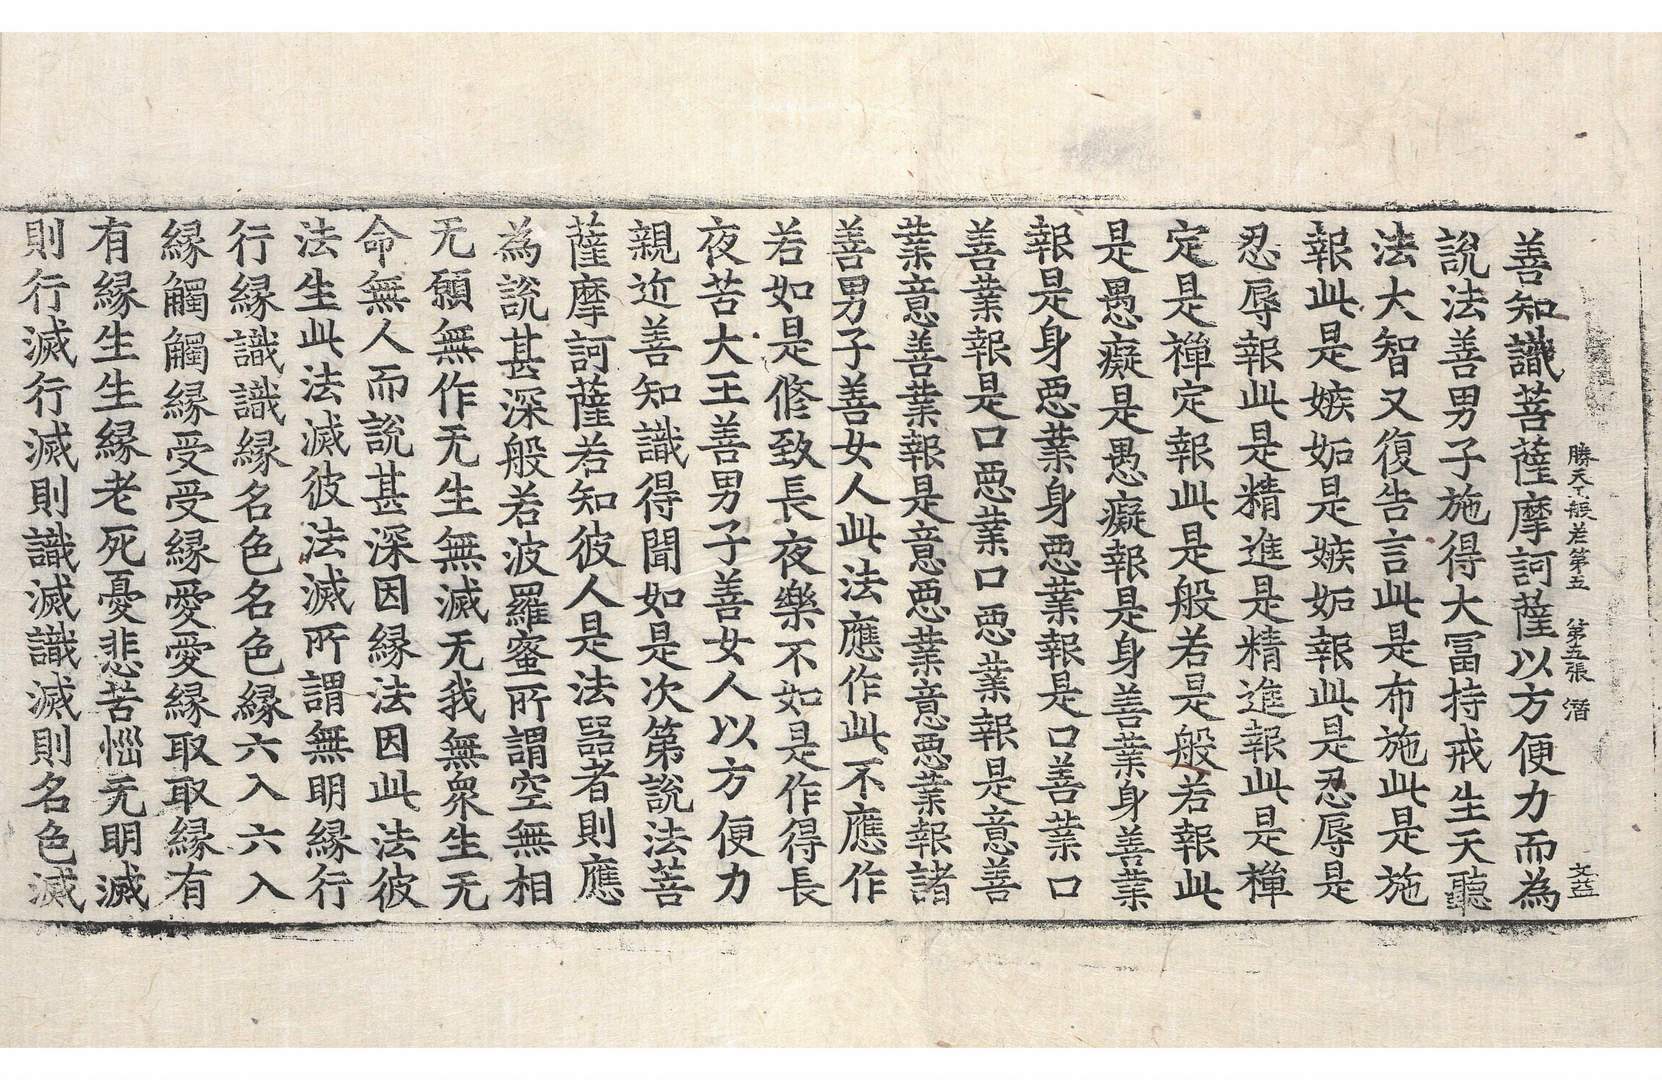 勝天王般若第五　第五張　潛　文益
善知識菩薩摩訶薩以方便力而為
說法善男子施得大冨持戒生天聽
法大智又復告言此是布施此是施
報此是嫉妬是嫉妬報此是忍辱是
忍辱報此是精進是精進報此是禪
定是禪定報此是般若是般若報此
是愚癡是愚癡報是身善業身善業
報是身惡業身惡業報是口善業口
善業報是口惡業口惡業報是意善
業意善業報是意惡業意惡業報諸
善男子善女人此法應作此不應作
若如是修致長夜樂不如是作得長
夜苦大王善男子善女人以方便力
親近善知識得聞如是次第說法菩
薩摩訶薩若知彼人是法器者則應
為說甚深般若波羅蜜所謂空無相
无願無作无生無滅无我無衆生无
命無人而說甚深因縁法因此法彼
法生此法滅彼法滅所謂無明縁行
行縁識識縁名色名色縁六入六入
縁觸觸縁受受縁愛愛縁取取縁有
有縁生生縁老死憂悲苦惱无明滅
則行滅行滅則識滅識滅則名色滅